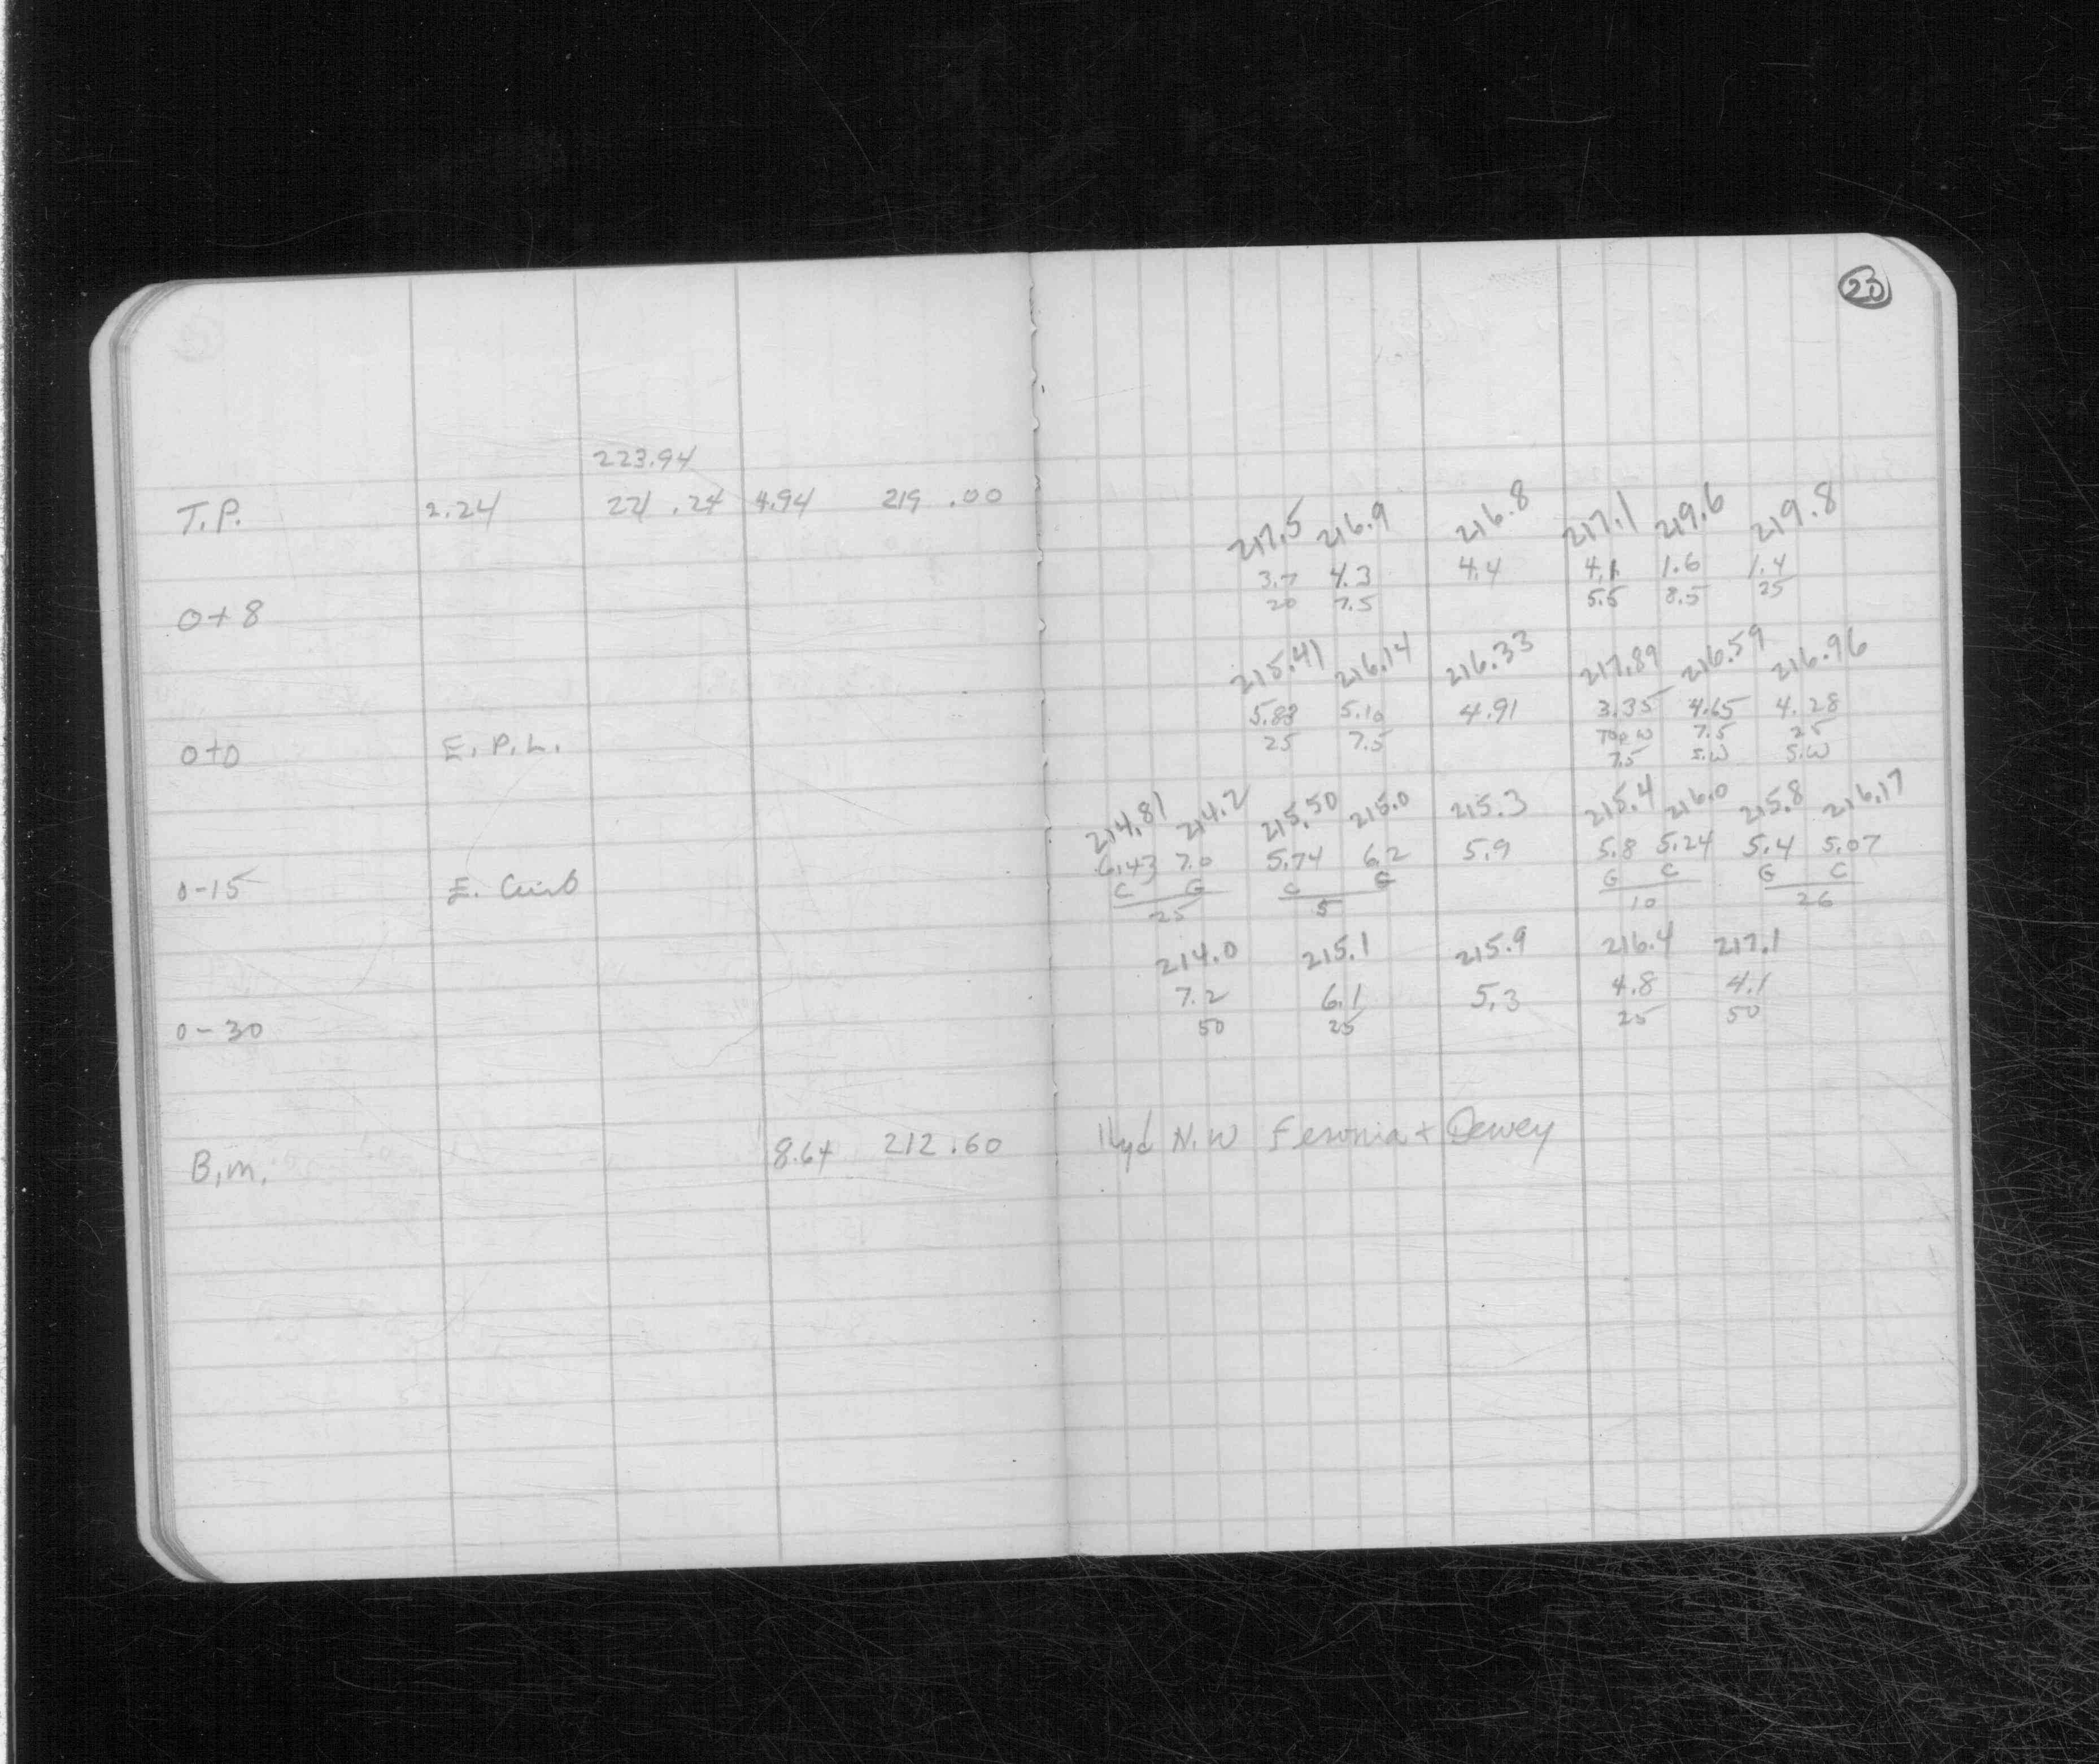 23
223.94
T.P. 2.24 221.24 4.94 219.00
217.5 216.9 216.8 217.1 219.6 219.8
3.7 4.3 4.4 4.1 1.6 1.4
0+8 20 7.5 5.5 8.5 25
215.41 216.14 216.33 217.89 216.59 216.96
5.83 5.10 4.91 3.35 4.65 4.28
0+0 E. P.L. 25 7.5 TOP W 7.5 25
7.5 S.W S.W
214.81 214.2 215.50 215.0 215.3 215.4 216.0 215.8 216.17
6.43 7.0 5.74 6.2 5.9 5.8 5.24 5.4 5.07
0-15 E. Curb C G C G G C G C
25 5 10 26
214.0 215.1 215.9 216.4 217.1
7.2 6.1 5.3 4.8 4.1
0-30 50 25 25 50
B.M. 8.64 212.60 Hyd N.W Fesonia + Dewey